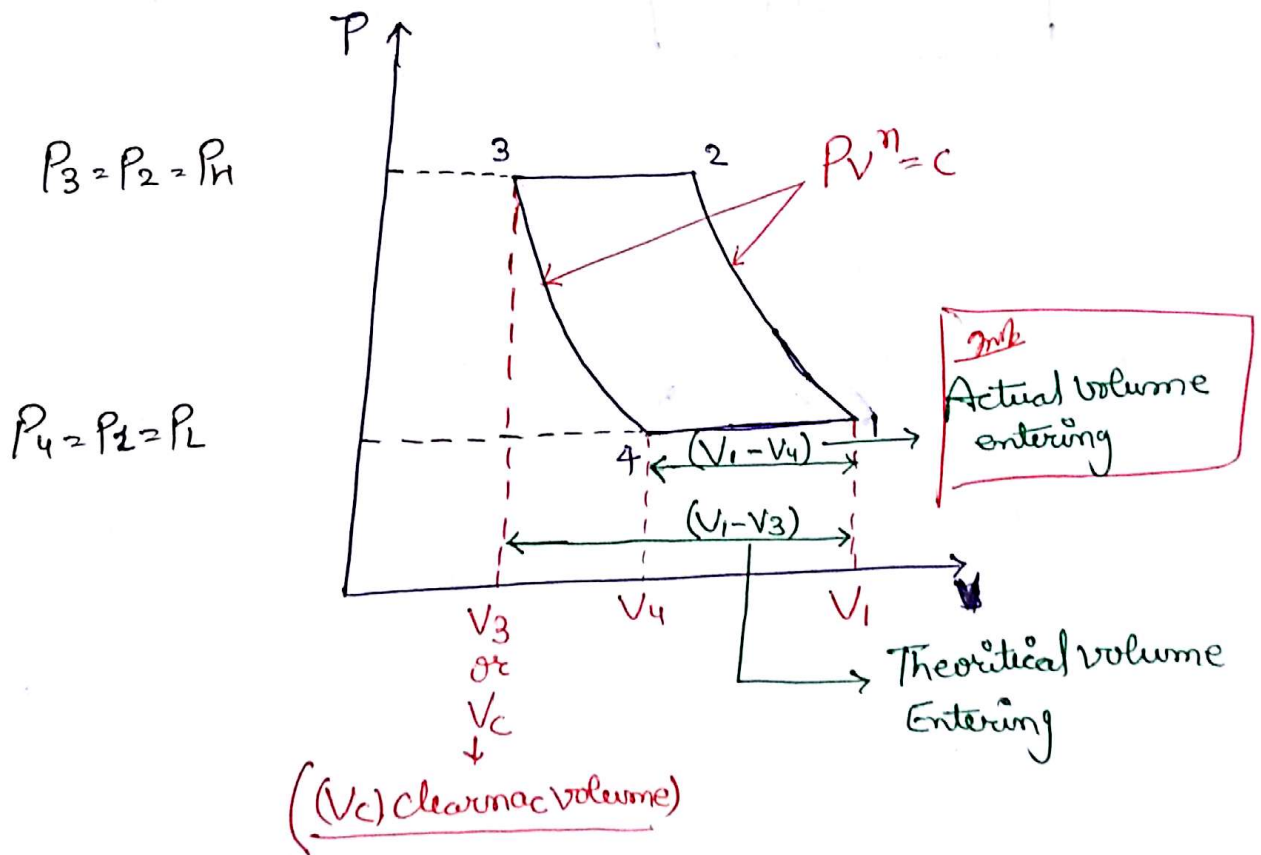 P
P3 = P2 = PH
3
2
PVⁿ = C
Actual volume
entering
P4 = P1 = PL
4
(V1-V4)
1
(V1-V3)
V3
or
Vc
V4
V1
V
Theoritical volume
Entering
((Vc) clearnac volume)